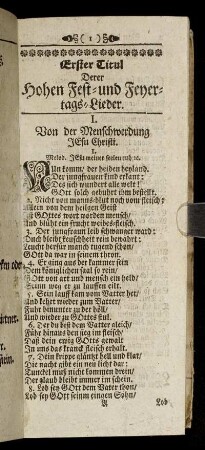 ( 1 )
Erster Titul
Derer
Hohen Fest- und Feyer-
tags-Lieder.
I.
Von der Menschwerdung
JEsu Christi.
1.
Melod. JEsu meiner seelen ruh ꝛc.
NUn komm, der heiden heyland,
Der jungfrauen kind erkant;
Des sich wundert alle welt!
GOtt solch gebuhrt ihm bestellt.
2. Nicht von manns-blut noch vom fleisch;
Allein von dem heilgen Geist
Ist GOttes wort worden mensch/
und blüht ein frucht weibes-fleisch.
3. Der jungfrauen leib schwanger ward:
Doch bleibt keuschheit rein bewahrt:
Leucht herfür manch tugend schon/
GOtt da war in seinem thron.
4. Er ging aus der kammer sein/
Dem königlichen saal so rein/
GOtt von art und mensch ein held/
Seinn weg er zu lauffen eilt.
5. Sein lauff kam vom Vatter her/
und kehrt wieder zum Vatter/
Fuhr hinunter zu der höll/
und wieder zu GOttes stul.
6. Der du bist dem Vatter gleich/
Führ hinaus den sieg im fleisch/
Daß dein ewig GOtts gewalt
In uns das kranck fleisch erhalt.
7. Dein krippe gläntzt hell und klar/
Die nacht gibt ein neu licht dar:
Tunckel muß nicht kommen drein/
Der glaub bleibt immer im schein.
8. Lob sey GOtt dem Vater thon/
Lob sey GOtt seinem einigen Sohn/
A Lob